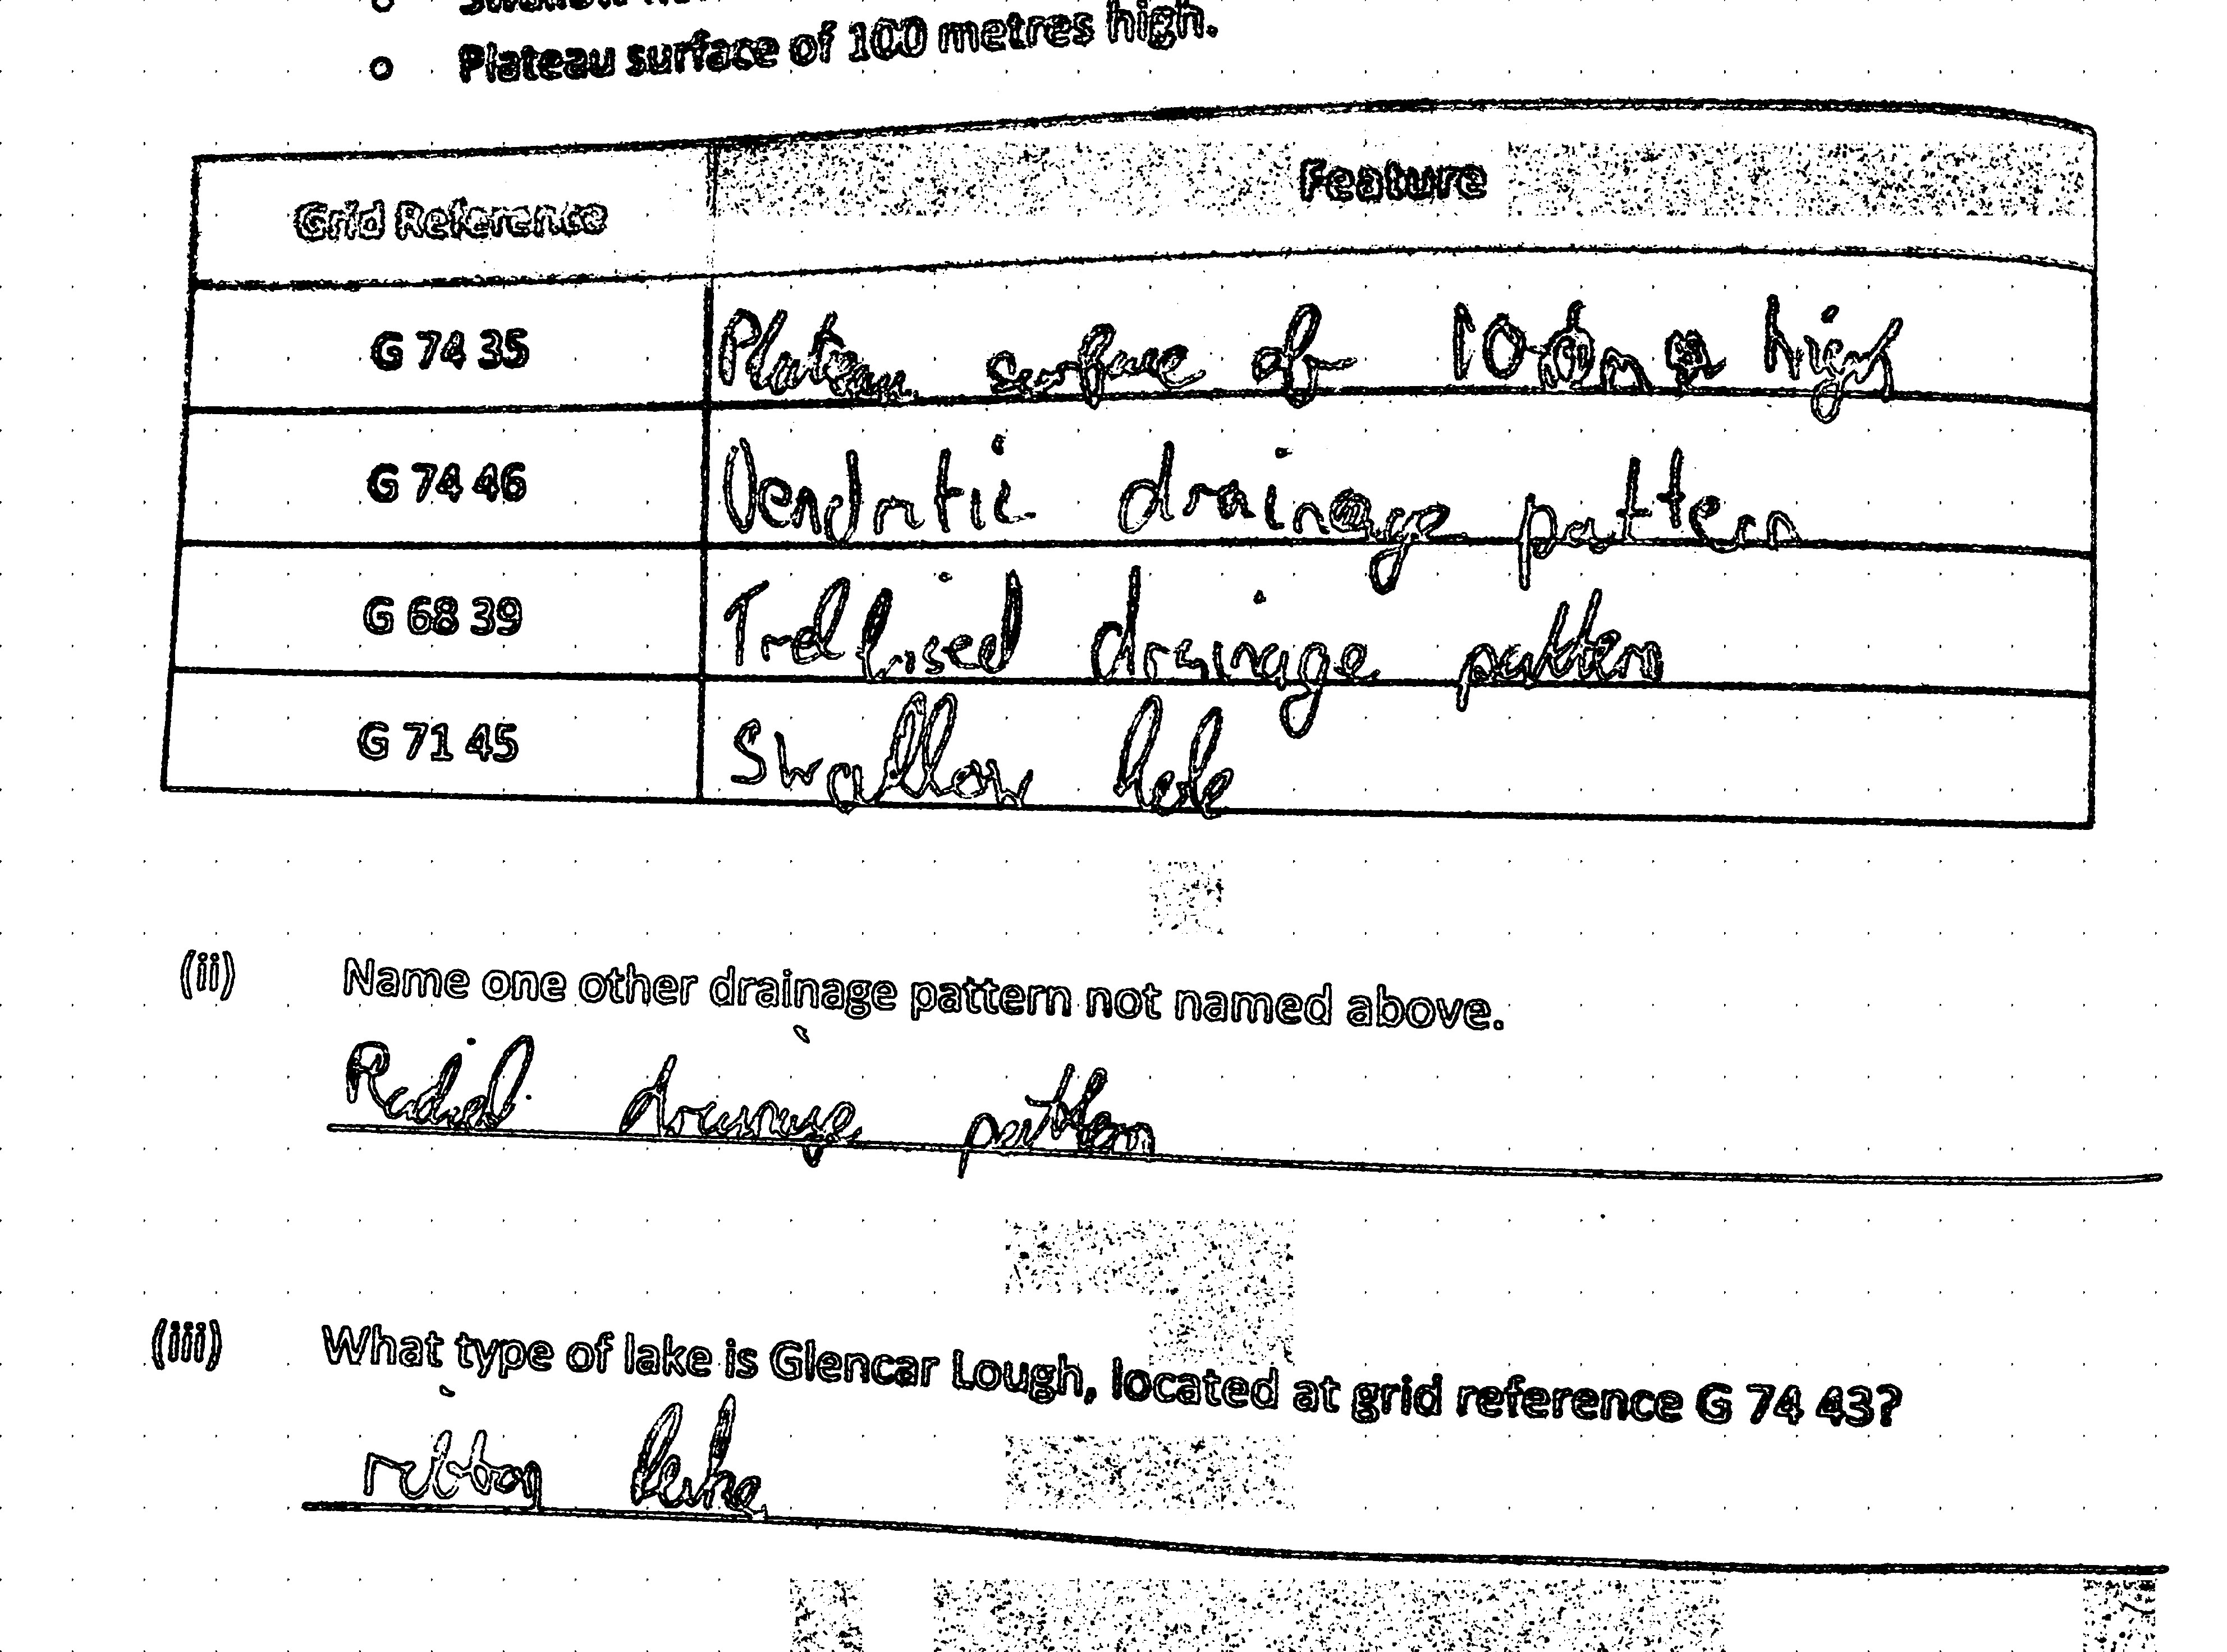 Plateau surface of 100 metres high.
Grid Reference Feature
G 74 35 Plateau surface of 100m high
G 74 46 Dendritic drainage pattern
G 68 39 Trellised drainage pattern
G 71 45 Swallow hole
(ii) Name one other drainage pattern not named above.
Radial drainage pattern
(iii) What type of lake is Glencar Lough, located at grid reference G 74 43?
ribbon lake